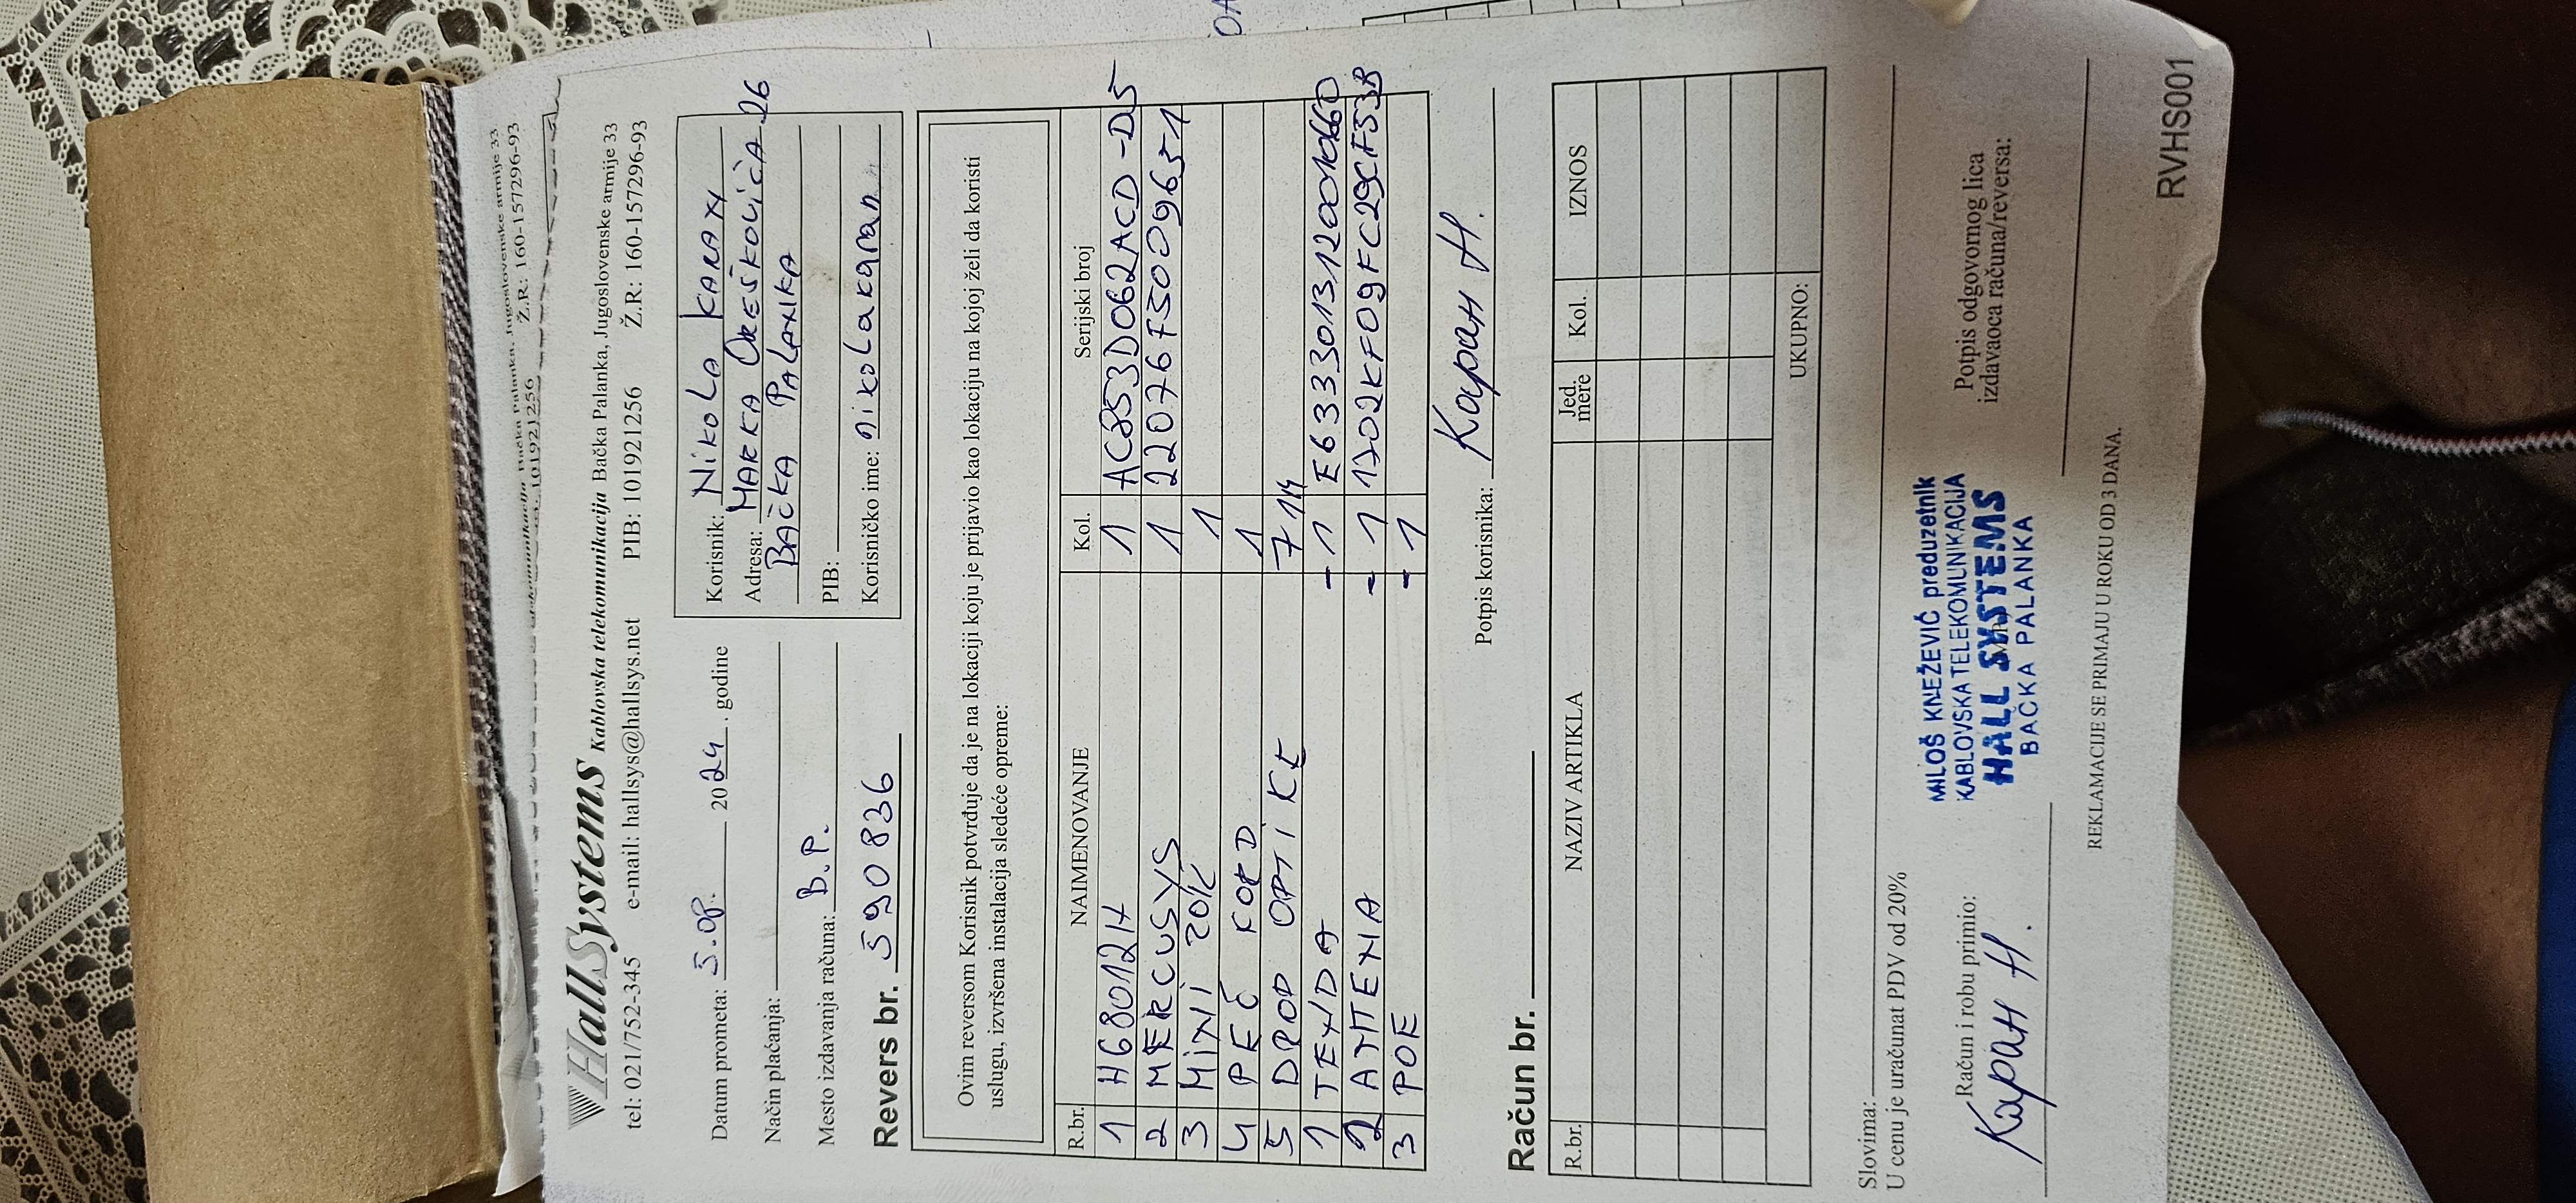 HallSystems Kablovska telekomunikacija Bačka Palanka, Jugoslovenske armije 33
tel: 021/752-345 e-mail: hallsys@hallsys.net PIB: 101921256 Ž.R: 160-157296-93
Datum prometa: 5.08. 2024. godine
Način plaćanja:
Mesto izdavanja računa: B.P.
Revers br. 590836
Korisnik: NIKOLA KARAN
Adresa: MARKA OREŠKOVIĆA 26
BAČKA PALANKA
PIB:
Korisničko ime: nikolakaran
Ovim reversom Korisnik potvrđuje da je na lokaciji koju je prijavio kao lokaciju na kojoj želi da koristi
uslugu, izvršena instalacija sledeće opreme:
R.br. NAIMENOVANJE Kol. Serijski broj
1 HG8012H 1 AC853D062ACD-D5
2 MERCUSYS 1 22076F5009651
3 MINI ZOK 1
4 PEČ KORD 1
5 DROP OPTIKE 71M
1 TENDA -1
2 ANTENA -1
3 POE -1
Potpis korisnika: Каран Н.
Račun br.
R.br. NAZIV ARTIKLA Jed. mere Kol. IZNOS
UKUPNO:
Slovima:
U cenu je uračunat PDV od 20%
Račun i robu primio:
Каран Н.
MILOŠ KNEŽEVIĆ preduzetnik
KABLOVSKA TELEKOMUNIKACIJA
HALL SYSTEMS
BAČKA PALANKA
Potpis odgovornog lica
izdavaoca računa/reversa:
REKLAMACIJE SE PRIMAJU U ROKU OD 3 DANA.
RVHS001